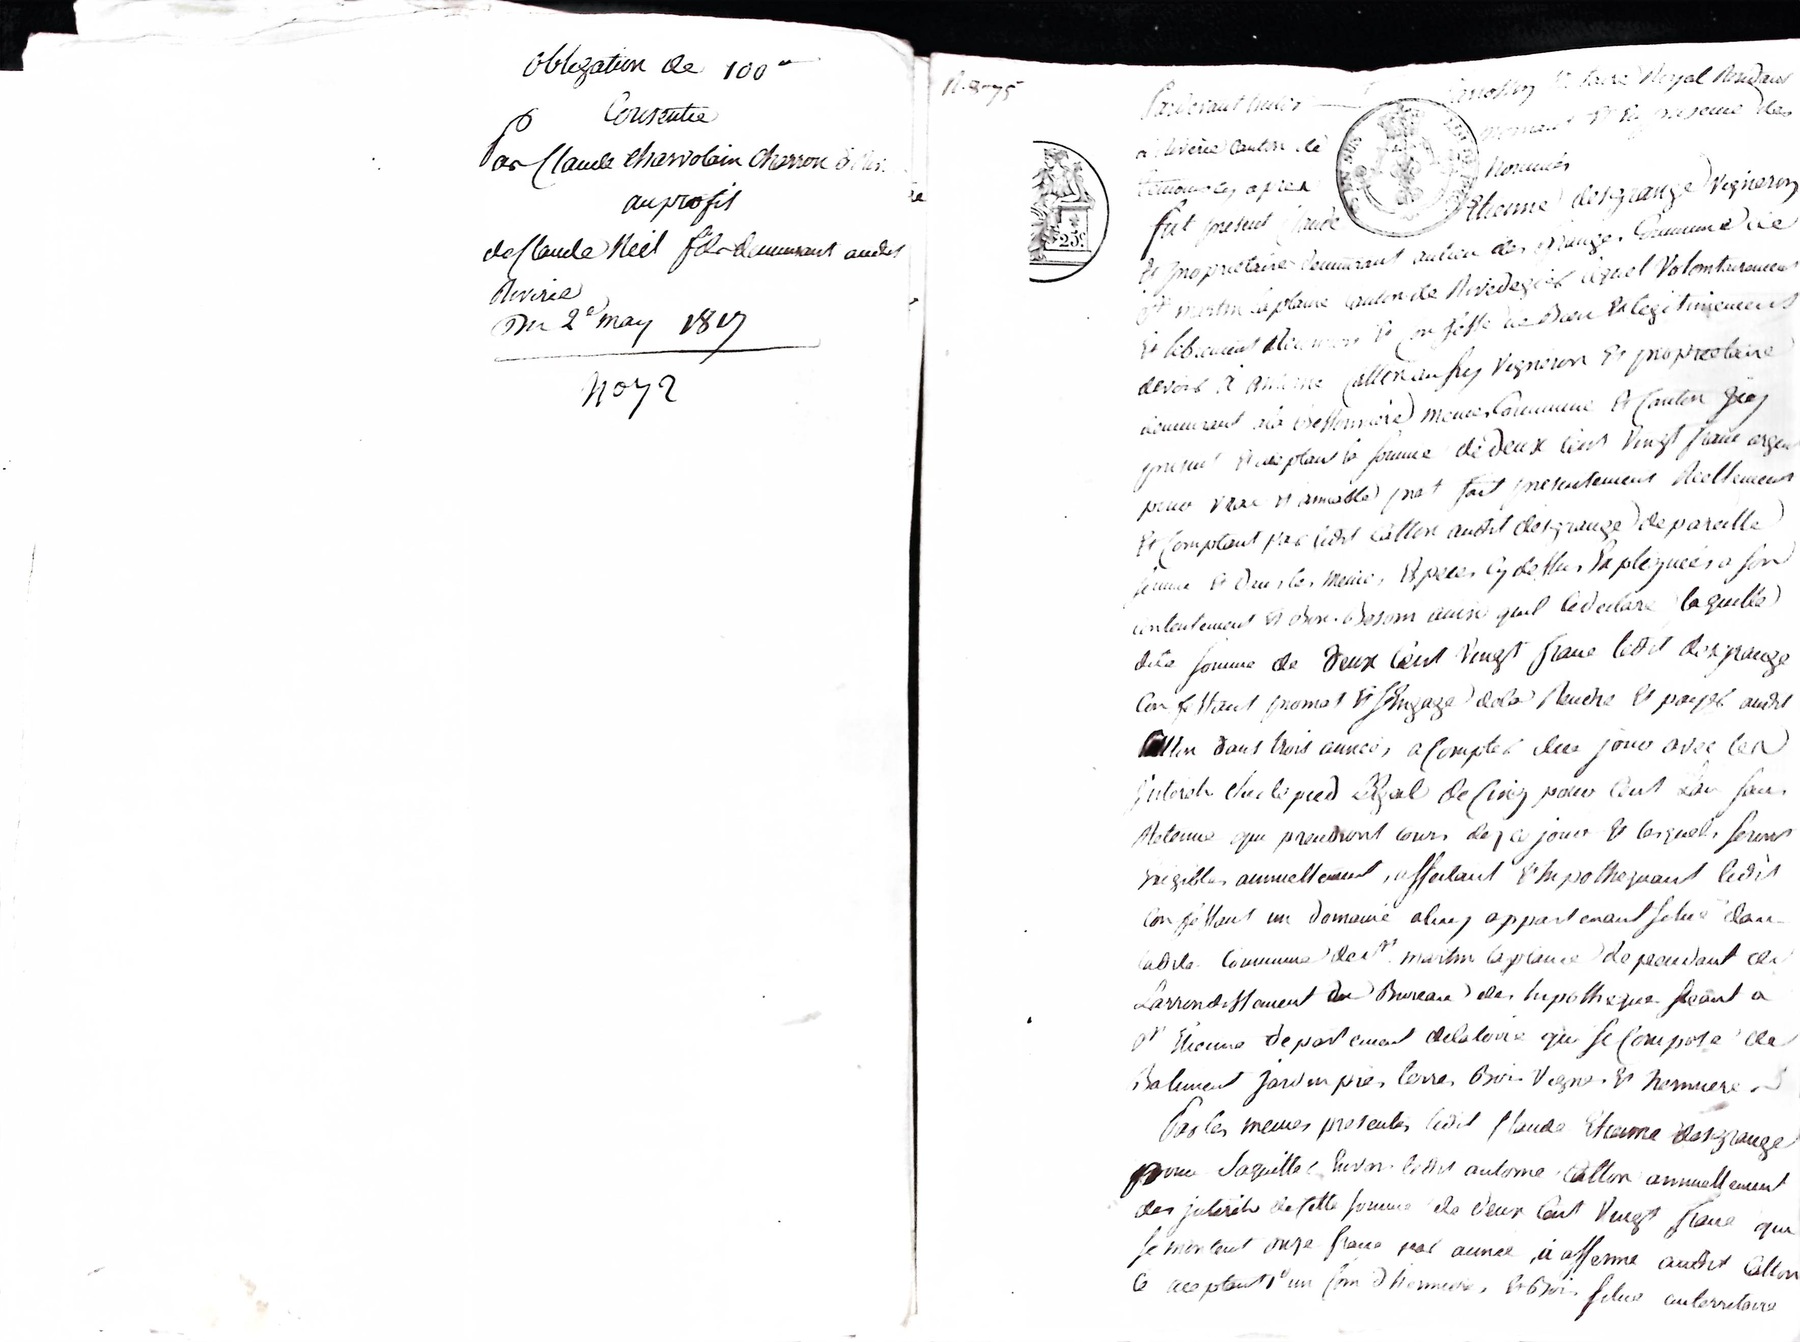 obligation de 100##
Consentie
Par Claude Charvolain Charron
au profit
de Claude Niel fils demeurant audit
Riverie
Du 2e may 1817
No 72
Pardevant Notaire Royal Residant
a Riverie Canton de et En presence des
temoins cy apres Nommés
fut present Claude Etienne desgrange Vigneron
Et proprietaire demeurant au lieu des granges Commune de
St martin la plaine Canton de Rivedegier lequel Volontairement
Et librement Reconnois Et Confesse de Bien Et legitimement
devoir a antoine Callon Vigneron Et proprietaire
demeurant a la meme Commune Et Canton Icy
present Et aceptant la somme de deux Cent Vingt franc argent
pour vrai Et amiable pret fait presentement Reellement
Et Comptant par ledit Callon audit desgrange de pareille
somme Et dans les memes Especes Cy dessus Expliquées a son
contentement Et Besoin ainsi quil le declare laquelle
dite somme de deux Cent Vingt franc ledit desgrange
Confessant promet Et S'Engage de la Rendre Et payer audit
Callon dans trois années a Compter de ce jour avec les
Interets sur le pied Legal de Cinq pour Cent L'an sans
Retenue qui prendront cours des ce jour Et lesquels seront
Exigibles annuellement, affectant Et hipothequant ledit
Confessant un domaine a luy appartenant situé dans
ladite Commune de St martin la plaine dependant de
L'arrondissement du Bureau des hipotheque seant a
St Etienne departement de la loire qui se Compose de
Batiment jardin prés terres Bois Vignes Et hermiere
Par les memes presentes ledit Claude Etienne desgrange
pour S'aquitter Envers ledit antoine Callon annuellement
des interets de cette somme de deux Cent Vingt franc qui
se montent onze franc par année, a affermé audit Callon
Ce aceptant 1° un Et Bois situé au territoire